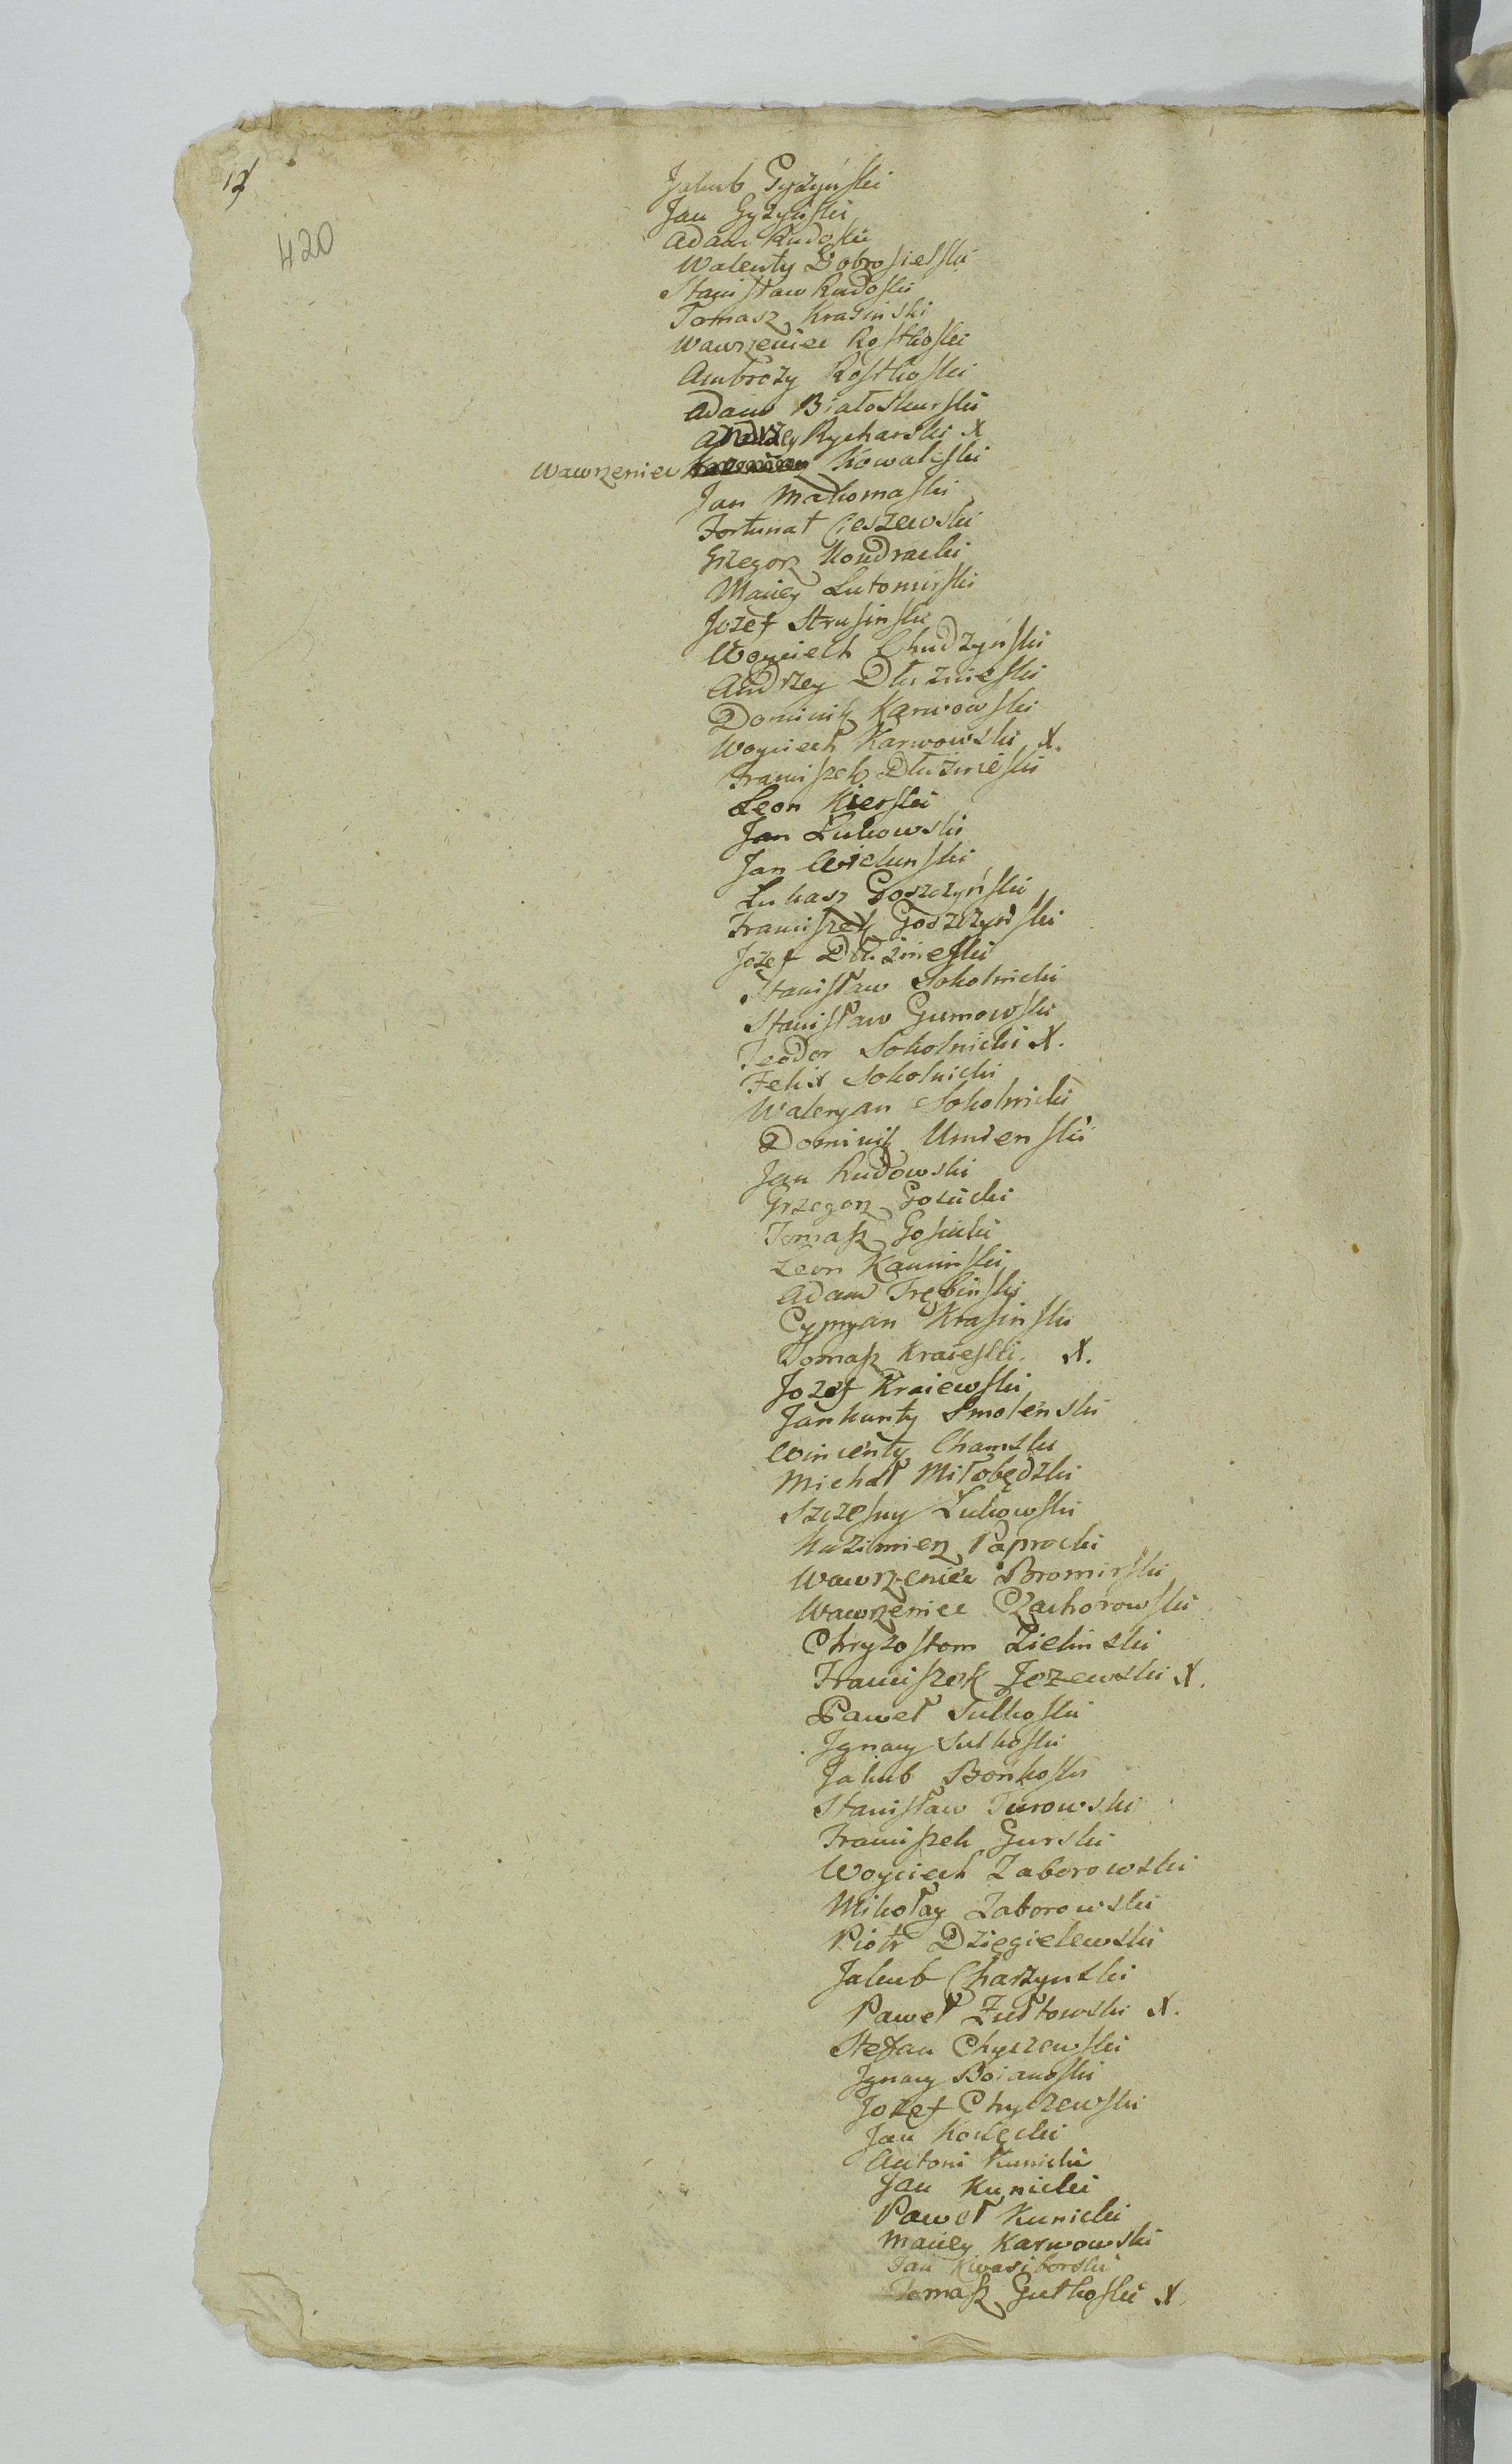 12
420
Jakub Gyżyński
Jan Gyżyński
Adam Rudoski
Walenty Dobrosielski
Stanisław Rudoski
Tomasz Krasinski
Wawrzeniec Rostkoski
Ambroży Rostkoski
Adam Białoskurski
Andrzey Rycharski X
Wawrzeniec Kowaliski
Jan Makomaski
Fortunat Cieszewski
Grzegorz Kondracki
Maciey Lutomirski
Jozef Strusinski
Woyciech Chudzyński
Andrzey Dłużnieski
Dominik Karwowski
Woyciech Karwowski X.
Franciszek Dłużnieski
Leon Kierski
Jan Łukowski
Jan Wielunski
Łukasz Goszczyński
Franciszek Goszczyński
Józef Dłużnieski
Stanisław Sokolnicki
Stanisław Gumowski
Teodor Sokolnicki X.
Felix Sokolnicki
Waleryan Sokolnicki
Dominik Umienski
Jan Rudowski
Grzegorz Gosicki
Tomasz Gosicki
Leon Kaminski
Adam Trębinski
Cypryan Krasinski
Tomasz Kraieski. X.
Jozef Kraiewski
Jankanty Smolenski
Wincenty Chamski
Michał Miłobędzki
Szczęsny Łukowski
Kazimierz Paprocki
Wawrzeniec Bromirski
Wawrzeniec Czachorowski
Chryzostom Zielinski
Franciszek Jezewski X.
Paweł Sulkoski
Jgnacy Sulkoski
Jakub Bonkoski
Stanisław Turowski
Franciszek Gurski
Woyciech Zaborowski
Mikołay Zaborowski
Piotr Dzięgielewski
Jakub Charzynski
Paweł Żułtowski X.
Stefan Chyczewski
Jgnacy Boianoski
Jozef Chyczewski
Jan
Antoni Kunicki
Jan Kunicki
Paweł Kunicki
Maciey Karwowski
Jan Kwasiborski
Tomasz Gutkoski X.